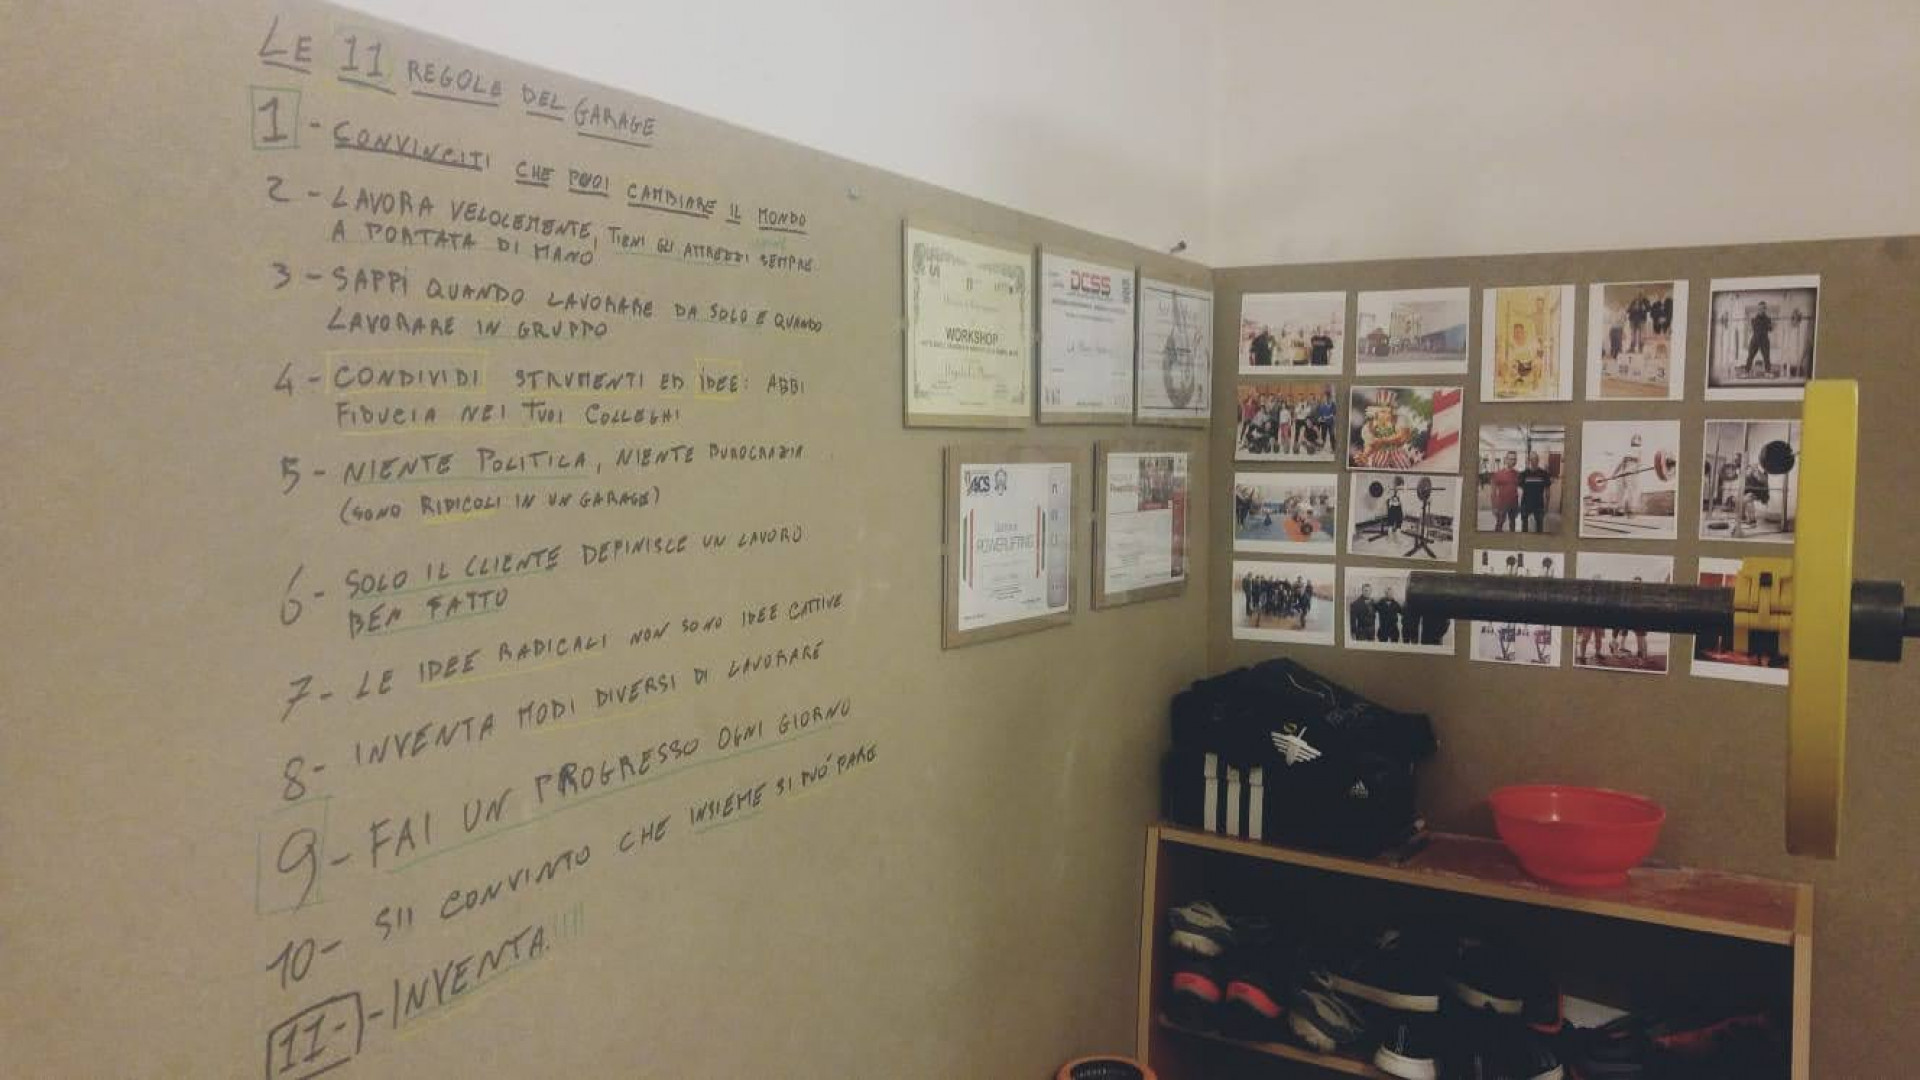 LE 11 REGOLE DEL GARAGE
1 - CONVINCITI CHE PUOI CAMBIARE IL MONDO
2 - LAVORA VELOCEMENTE, TIENI GLI ATTREZZI SEMPRE
A PORTATA DI MANO
3 - SAPPI QUANDO LAVORARE DA SOLO E QUANDO
LAVORARE IN GRUPPO
4 - CONDIVIDI STRUMENTI ED IDEE: ABBI
FIDUCIA NEI TUOI COLLEGHI
5 - NIENTE POLITICA, NIENTE BUROCRAZIA
(SONO RIDICOLI IN UN GARAGE)
6 - SOLO IL CLIENTE DEFINISCE UN LAVORO
BEN FATTO
7 - LE IDEE RADICALI NON SONO IDEE CATTIVE
8 - INVENTA MODI DIVERSI DI LAVORARE
9 - FAI UN PROGRESSO OGNI GIORNO
10 - SII CONVINTO CHE INSIEME SI PUÒ FARE
11 - INVENTA!!!!
WORKSHOP
DCSS
POWERLIFTING
3
adidas